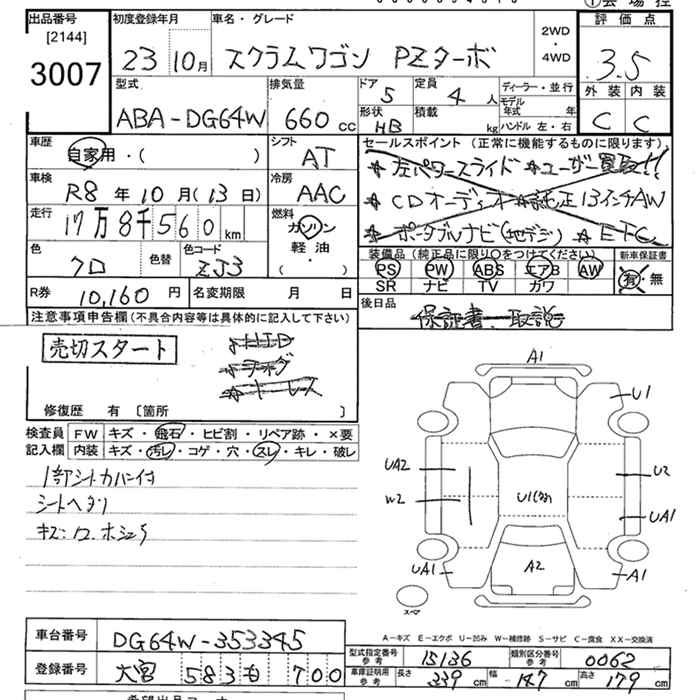 出品番号
[2144]
3007
初度登録年月
23 10月
車名・グレード
スクラムワゴン PZターボ
2WD
・
4WD
評価点
3.5
外装 内装
C C
型式
ABA-DG64W
排気量
660 cc
ドア
5
定員
4 人
形状
HB
積載
kg
ディーラー・並行
モデル年式 年
ハンドル 左・右
車歴
自家用・( )
シフト
AT
車検
R8 年 10 月(13 日)
冷房
AAC
走行
17万8千560 km
燃料
ガソリン
軽油
( ・ )
色
クロ
色替
色コード
ZJ3
R券
10,160 円
名変期限 月 日
セールスポイント (正常に機能するものに限ります)
★左パワースライド ★ユーザー買取!!
★CDオーディオ ★純正13インチAW
★ポータブルナビ(地デジ) ★ETC
装備品 (純正品に限り○をつけてください)
新車保証書
PS PW ABS エアB AW
SR ナビ TV カワ
有・無
後日品
保証書 取説
注意事項申告欄(不具合内容等は具体的に記入して下さい)
売切スタート
修復歴 有 [箇所 ]
検査員記入欄
FW キズ・飛石・ヒビ割・リペア跡・×要
内装 キズ・汚レ・コゲ・穴・スレ・キレ・破レ
1部シートカバー付
シートヘタリ
A1
U1
UA2
U2
W2
UA1
UA1
A2
A1
スペア
A-キズ E-エクボ U-凹み W-補修跡 S-サビ C-腐食 XX-交換済
車台番号
DG64W-353345
登録番号
大宮 583 も 700
型式指定番号 参考
15136
類別区分番号 参考
0062
車庫証明用 参考
長さ 339 cm 幅 147 cm 高さ 179 cm